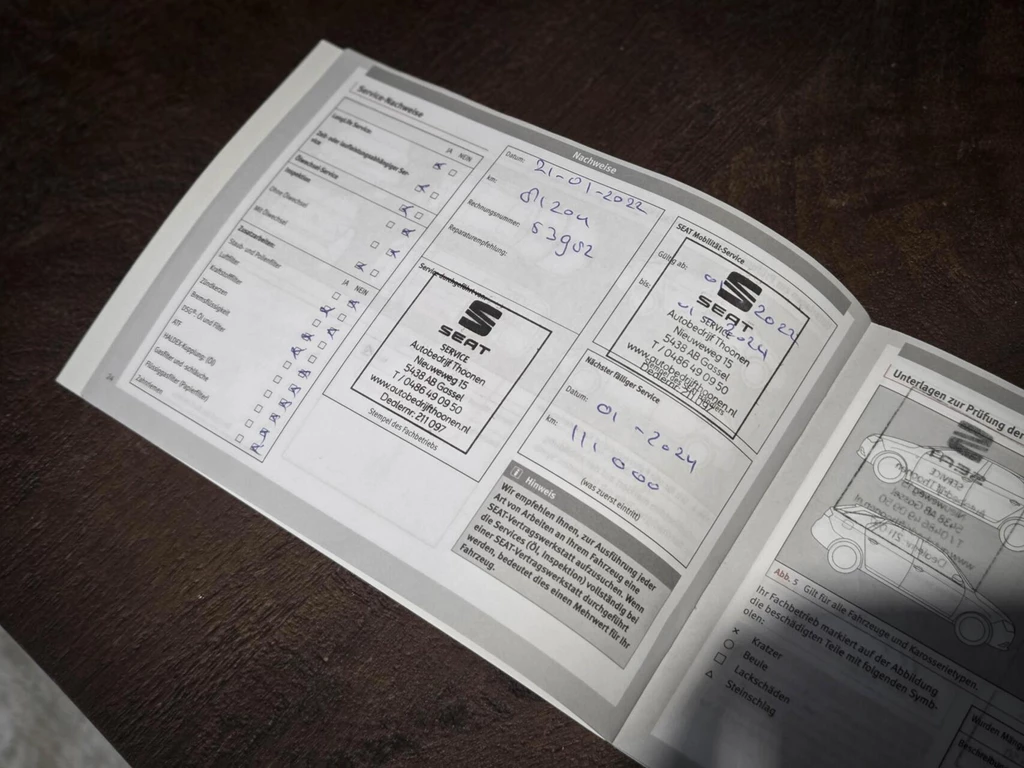 Service-Nachweise
LongLife Service:
JA NEIN
Zeit- oder laufleistungsabhängiger Ser-
vice:
Ölwechsel-Service
Inspektion
Ohne Ölwechsel
Mit Ölwechsel
Zusatzarbeiten:
JA NEIN
Staub- und Pollenfilter
Luftfilter
Kraftstofffilter
Zündkerzen
Bremsflüssigkeit
DSG®: Öl und Filter
ATF
HALDEX-Kupplung (Öl)
Zahnriemen
Nachweise
Datum: 21-01-2022
km: 81204
Rechnungsnummer: 53952
Reparaturempfehlung:
SEAT
SERVICE
Autobedrijf Thoonen
Nieuweweg 15
5438 AB Gassel
T / 0486 49 09 50
www.autobedrijfthoonen.nl
Dealernr. 211 097
Stempel des Fachbetriebs
SEAT Mobilität-Service
Gültig ab:
bis:
SEAT
SERVICE
Autobedrijf Thoonen
Nieuweweg 15
5438 AB Gassel
T / 0486 49 09 50
www.autobedrijfthoonen.nl
Dealernr. 211 097
Nächster fälliger Service
Datum: 01-2024
km: 111 000
(was zuerst eintritt)
i Hinweis
Wir empfehlen Ihnen, zur Ausführung jeder
Art von Arbeiten an Ihrem Fahrzeug eine
SEAT-Vertragswerkstatt aufzusuchen. Wenn
die Services (Öl, Inspektion) vollständig bei
einer SEAT-Vertragswerkstatt durchgeführt
werden, bedeutet dies einen Mehrwert für Ihr
Fahrzeug.
Unterlagen zur Prüfung der
Abb. 5 Gilt für alle Fahrzeuge und Karosserietypen.
Ihr Fachbetrieb markiert auf der Abbildung
die beschädigten Teile mit folgenden Symb-
olen:
× Kratzer
○ Beule
□ Lackschäden
△ Steinschlag